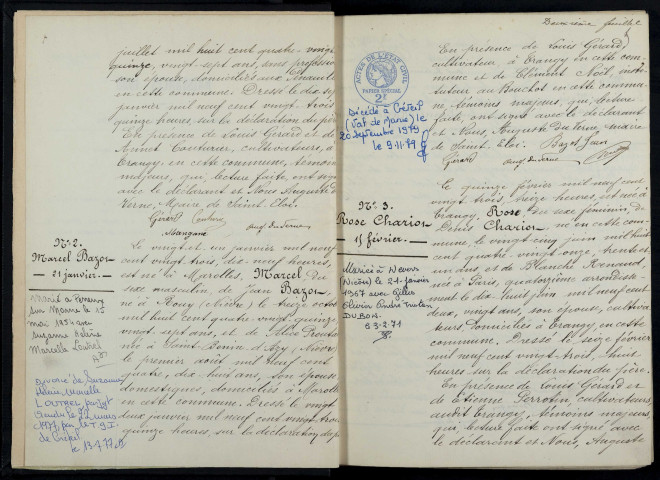 juillet mil huit cent quatre-vingt
quinze, vingt-sept ans, sans profession
son épouse, domiciliés aux
en cette commune. Dressé le dix sept
janvier mil neuf cent vingt trois
quinze heures, sur la déclaration du père
En présence de Louis Gérard et de
Couturier, cultivateurs, à
Trangy, en cette commune, témoins
majeurs, qui, lecture faite, ont signé
avec le déclarant et Nous Auguste du
Verne, Maire de Saint Eloi.
Gérard Couturier Aug. du Verne
Mangane
N° 2.
Marcel Bazot
21 janvier.
Marié à
sur Marne le 25
mai 1954 avec
Suzanne Hélène
Marcelle Loutrel
Le vingt et un janvier mil neuf
cent vingt trois, dix neuf heures,
est né à Marolles, Marcel du
sexe masculin de Jean Bazot
né à Rouy (Nièvre) le treize
mil huit cent quatre-vingt-quinze
vingt-sept, ans, et de
née à Saint-Benin d'Azy, Nièvre,
le premier août mil neuf cent
quatre, dix huit ans, son épouse
domestiques, domiciliés à Marolles
en cette commune. Dressé le vingt
deux janvier mil neuf cent vingt trois
quinze heures, sur la déclaration du père
Divorcé de Suzanne
Hélène Marcelle
LOUTREL par jugt
rendu le
1977 par le T.G.I.
de Créteil
le 13.9.77
Deuxième feuillet
ACTES DE L'ÉTAT CIVIL
PAPIER SPÉCIAL
2F
Décédé à Créteil
(Val de Marne) le
20 septembre 1979
le 9.11.79
En présence de Louis Gérard
cultivateur, à Trangy en cette com-
mune et de Clément Noël, insti-
tuteur au Bouchot en cette commu-
ne, témoins majeurs, qui, lecture
faite, ont signé avec le déclarant
et Nous, Auguste du Verne, maire
de Saint Eloi. Bazot Jean
Gérard Aug. du Verne Noël
N° 3.
Rose Charion
15 février.
Mariée à Nevers
(Nièvre) le 21 janvier
1967 avec Gilles
Olivier André Tristan
DUBON.
53-2-71
Le quinze février mil neuf cent
vingt trois, seize heures, est née à
Trangy, Rose du sexe féminin de
Denis Charion, né en cette com-
mune, le vingt cinq juin mil huit
cent quatre vingt onze, trente et
un ans et de Blanche Renaud,
née à Paris, quatorzième arrondisse-
ment le dix huit juin mil neuf cent
deux, vingt ans, son épouse, cultiva-
teurs, domiciliés à Trangy, en cette
commune. Dressé le seize février
mil neuf cent vingt-trois, huit
heures sur la déclaration du père.
En présence de Louis Gérard et
de Etienne Perrotin, cultivateurs,
audit Trangy, témoins majeurs
qui, lecture faite ont signé avec
le déclarant et Nous, Auguste